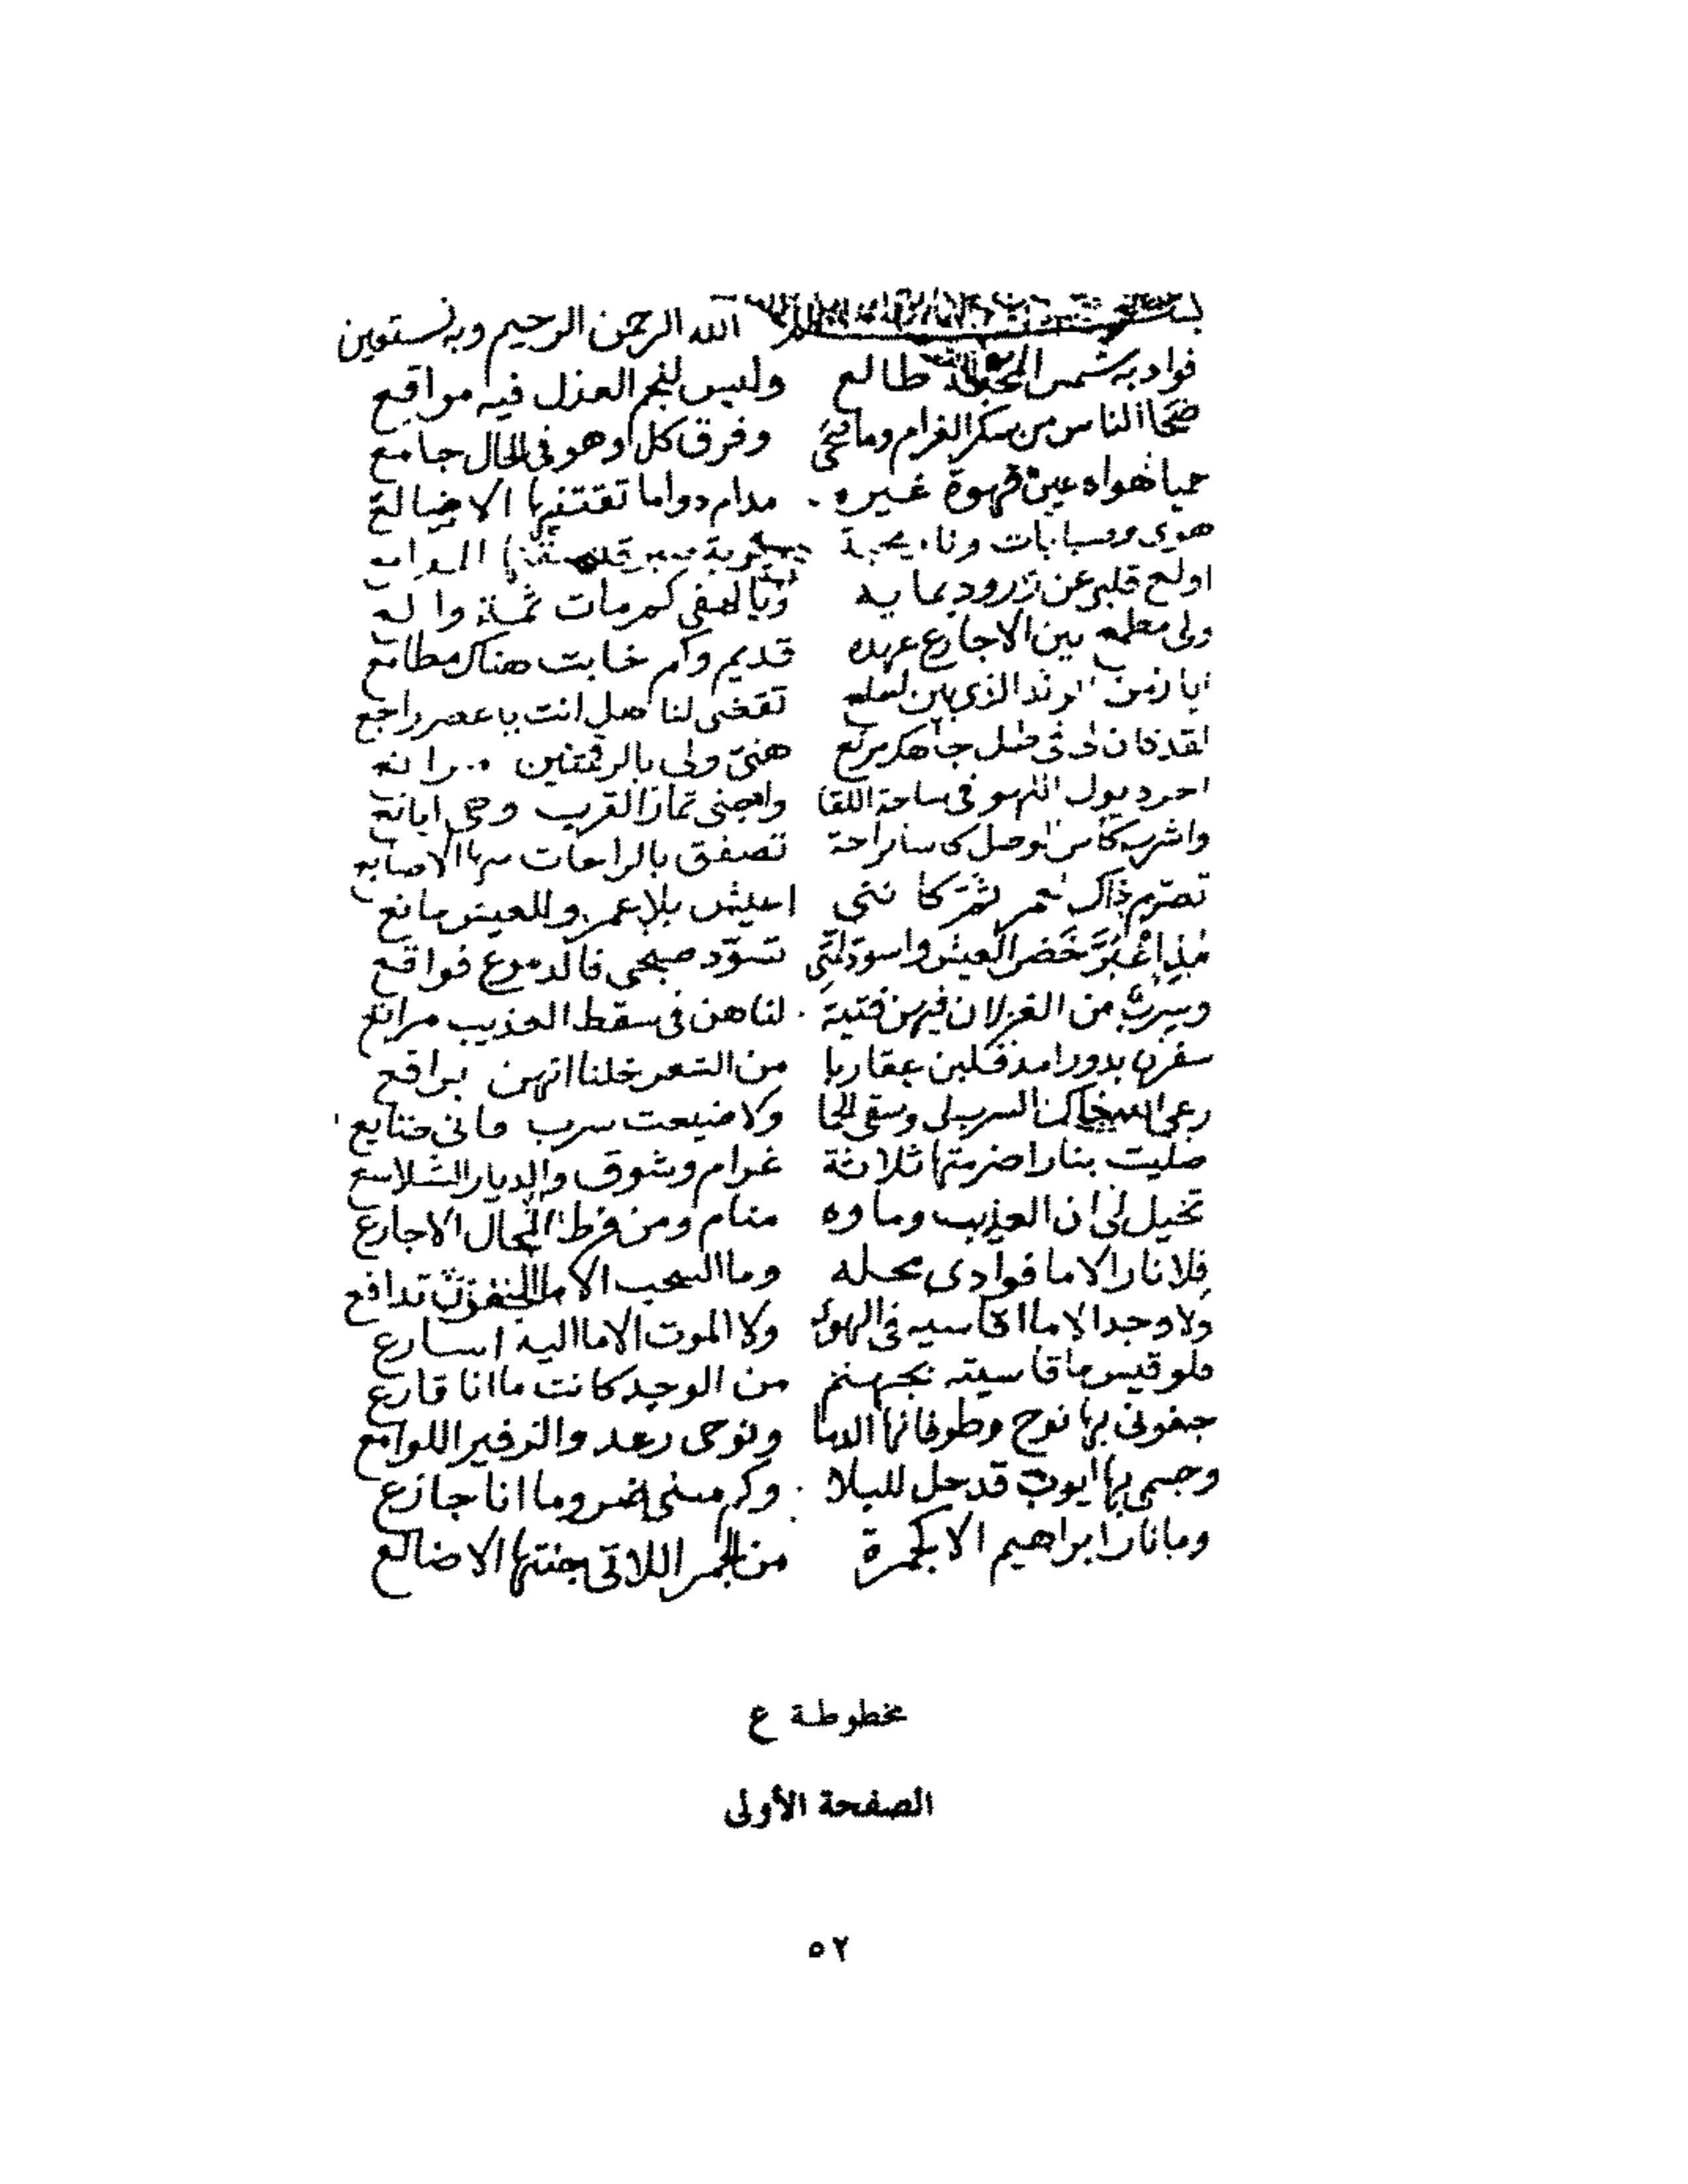 الله الرحمن الرحيم وبه نستعين
فواد به شمس المحبة طالع وليس لنجم العذل فيه مواقع
صحا الناس من سكر الغرام وما صحى وفرق كل وهو فى الحال جامع
حميا هواه عين قهوة غيره مدام دواما تقتنيها الاضالع
هوى وصبابات ونار محبة
اولع قلبى عن زرود بمايه ويا لهفى كم مات ثمة والع
ولى مطمع بين الاجارع عهده قديم وكم خابت هناك مطامع
ايا زمن الرند الذى بين لعلع تقضى لنا هل انت يا عصر راجع
لقد كان لى فى ظل جاهك مرتع هنى ولى بالرقمتين مرابع
اجر ديول اللهو فى ساحة اللقا واجنى ثمار القرب وهى ايانع
واشرب كاس الوصل كاسا براحة تصفق بالراحات منها الاصابع
تصرم ذاك العمر ثم كاننى اعيش بلا عمر وللعيش مانع
مذ اغبر خضر العيش واسود لمتى تسود صبحى فالدموع فواقع
وسرب من الغزلان فيهن فتية لنا هن فى سقط العذيب مراتع
سفرن بدورا مذ قلبن عقاربا من الشعر خلنا انهن براقع
رعى الله ذاك السرب لى وسقى الحما ولا ضيعت سرب فانى ضايع
صليت بنار اضرمتها ثلاثة غرام وشوق والديار الشلاسع
تخيل لى ان العذيب وماوه منام ومن فرط المحال الاجارع
فلا نار الا ما فوادى محله وما السحب الا ما الجفون تدافع
ولا وجد الا ما اقاسيه فى الهوى ولا الموت الا ما اليه اسارع
فلو قيس ما قاسيته بجهنم من الوجد كانت ما انا قارع
جفونى بها نوح وطوفانها الدما ونوحى رعد والزفير اللوامع
وجسمى بها ايوب قد حل للبلا وكم مسنى ضر وما انا جازع
وما نار ابراهيم الا كجمرة من الجمر اللاتى جنتها الاضالع
مخطوطة ع
الصفحة الأولى
٥٢